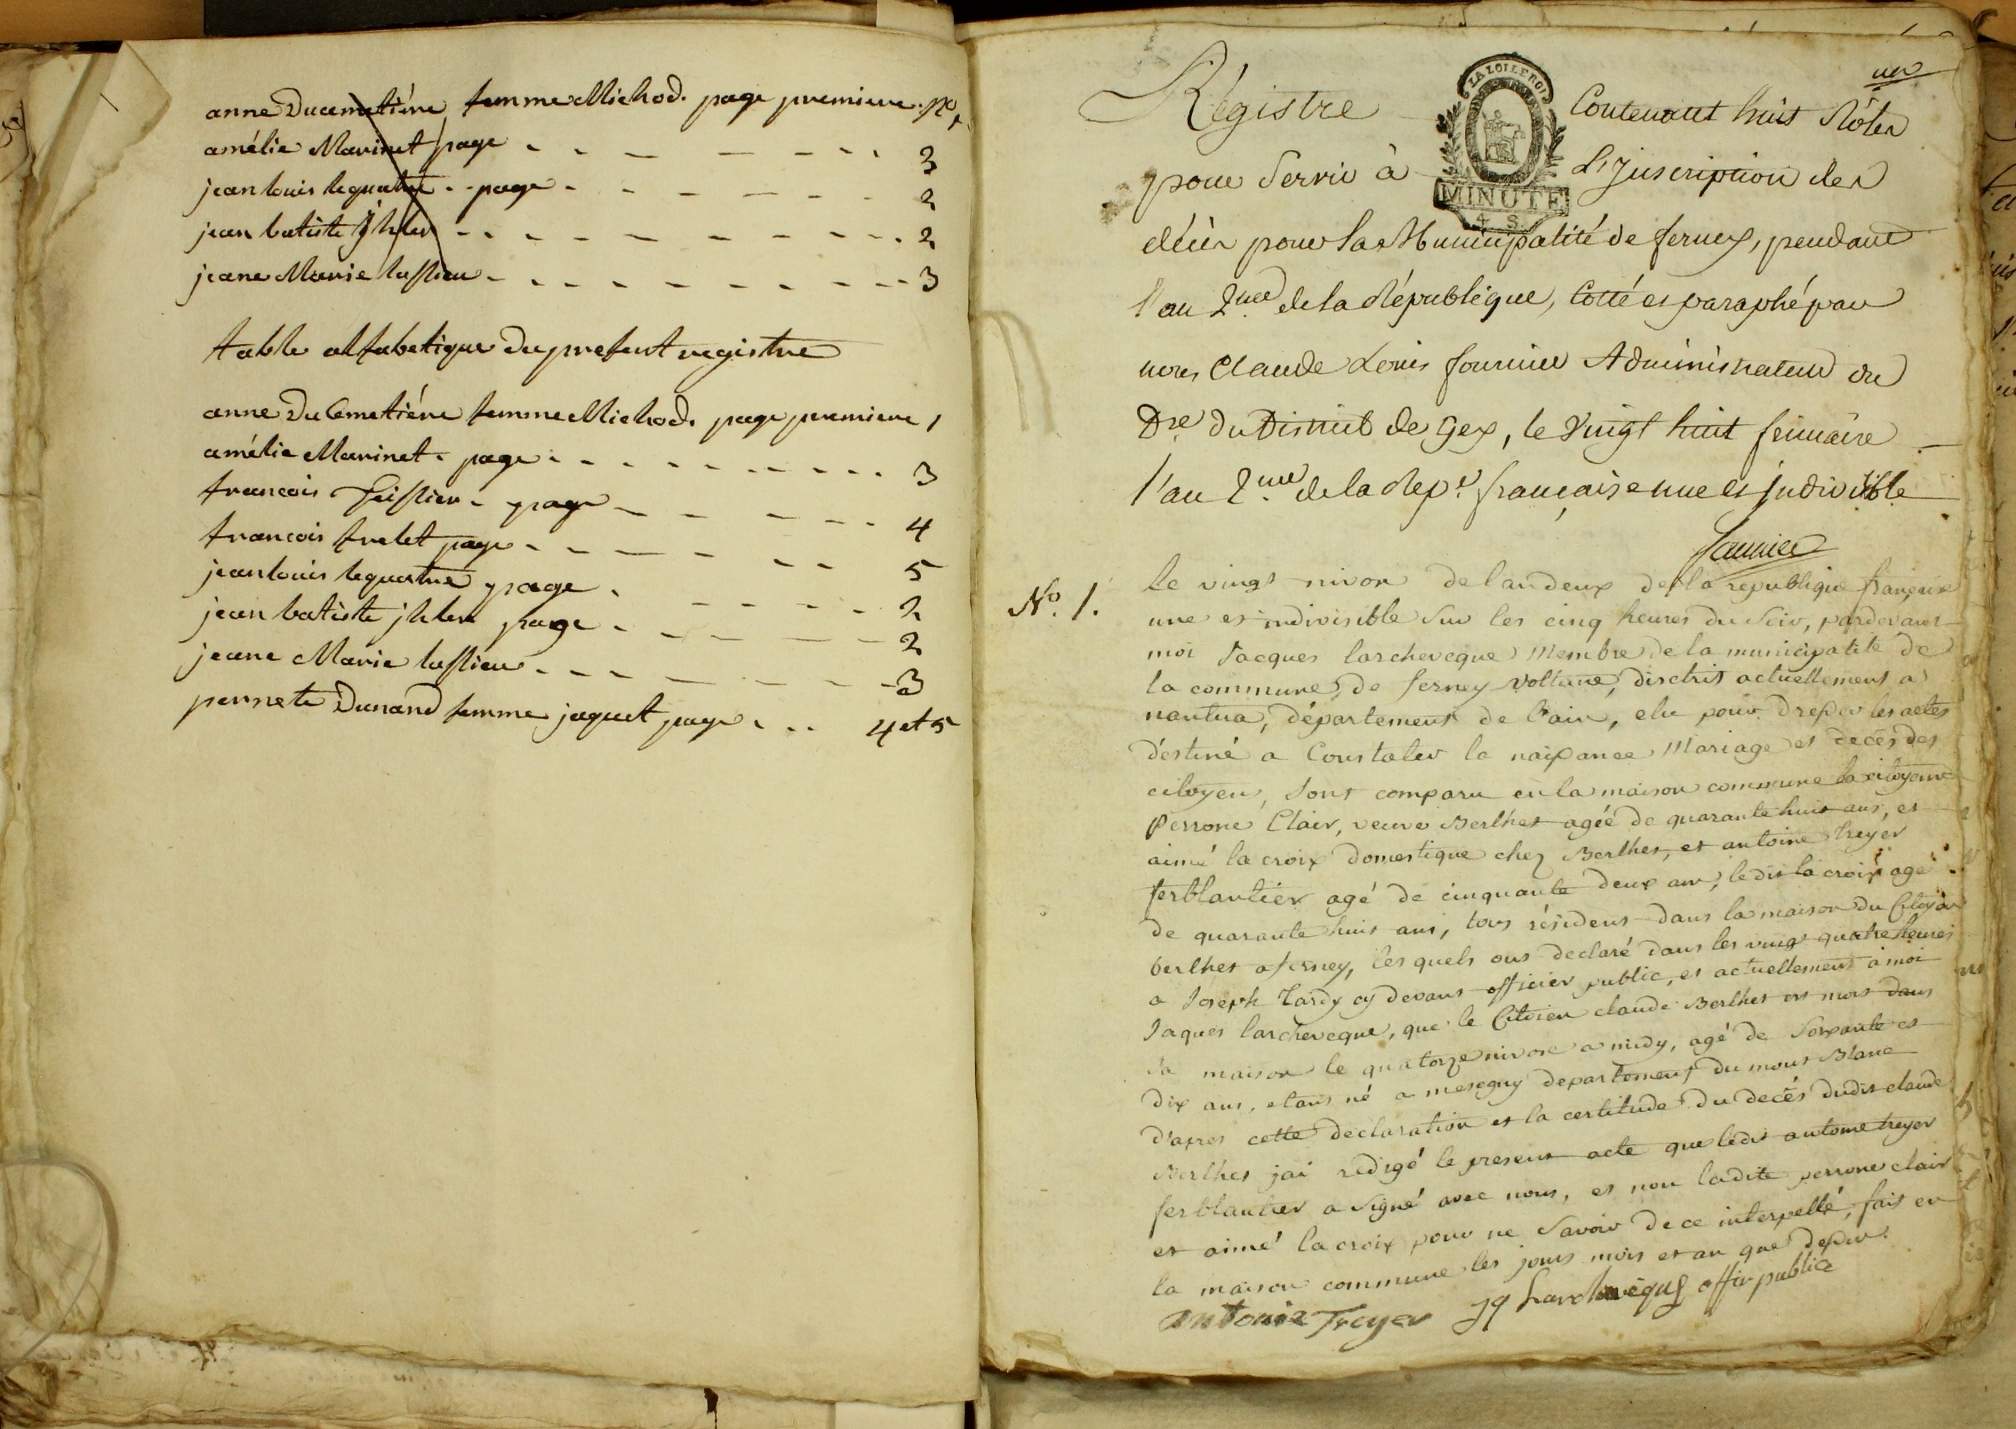 anne Ducemetiére femme Michod. page premiere.
amélie Marinet page 3
jean louis lequatre page 2
jean batiste jhler 2
jeane Marie lassieu 3
table alfabetique du present registre
anne Ducemetiére femme Michod. page premiere 1
amélie Marinet. page 3
francois page 4
francois frelet page 5
jean louis lequatre page 2
jean batiste jhler page 2
jeane Marie lassieu 3
pernete Dunand femme jaquet page 4 et 5
un
Régistre Contenant huit Rôles
LA LOI LE ROI
MINUTE
4 S
pour Servir à L'Inscription des
décès pour la Municipalité de fernex, pendant
l'an 2me de la République, Cotté et paraphé par
nous Claude Louis fournier Administrateur du
Dre du District de Gex, le Vingt huit frimaire
l'an 2me de la Rep.e française une et indivisible
fournier
No. 1.
le vingt nivos de landeux de la republique française
une et indivisible Sur les cinq heures du Soir, pardevant
moi Jacques larcheveque Membre de la municipalité de
la commune de ferney voltaire, disctrit actuellement a
nantua, département de l'ain, elu pour dresser les actes
déstiné a Constater la naissance Mariage et decés des
citoyen, Sont comparu en la maison commune la citoyenne
perrone Clair, veuve Berthet agéé de quarante huit ans, et
aimé la croix domestique chez Berthet, et antoine treyer
ferblantier agé de cinquante deux ans, ledit la croix agé
de quarante huit ans, tous résident dans la maison du Citoyen
berthet a ferney, les quels ont declaré dans les vingt quatre heures
a Joseph Tardy cy devant officier public, et actuellement a moi
Jaques larcheveque, que le Citoien claude Berthet est mort dans
sa maison le quatorze nivose a midy, agé de Soixante et
dix ans, etant né a mesegny departement du mont Blanc
d'apres cette déclaration et la certitude du decés dudit claude
Berthet jai redigé le present acte que ledit antoine treyer
ferblantier a signé avec nous, et non ladite perrone clair
et aimé la croix pour ne Savoir de ce interpellé, fait en
la maison commune les jours mois et an que dessus.
antoine Treyer Jq Larcheveque offir public